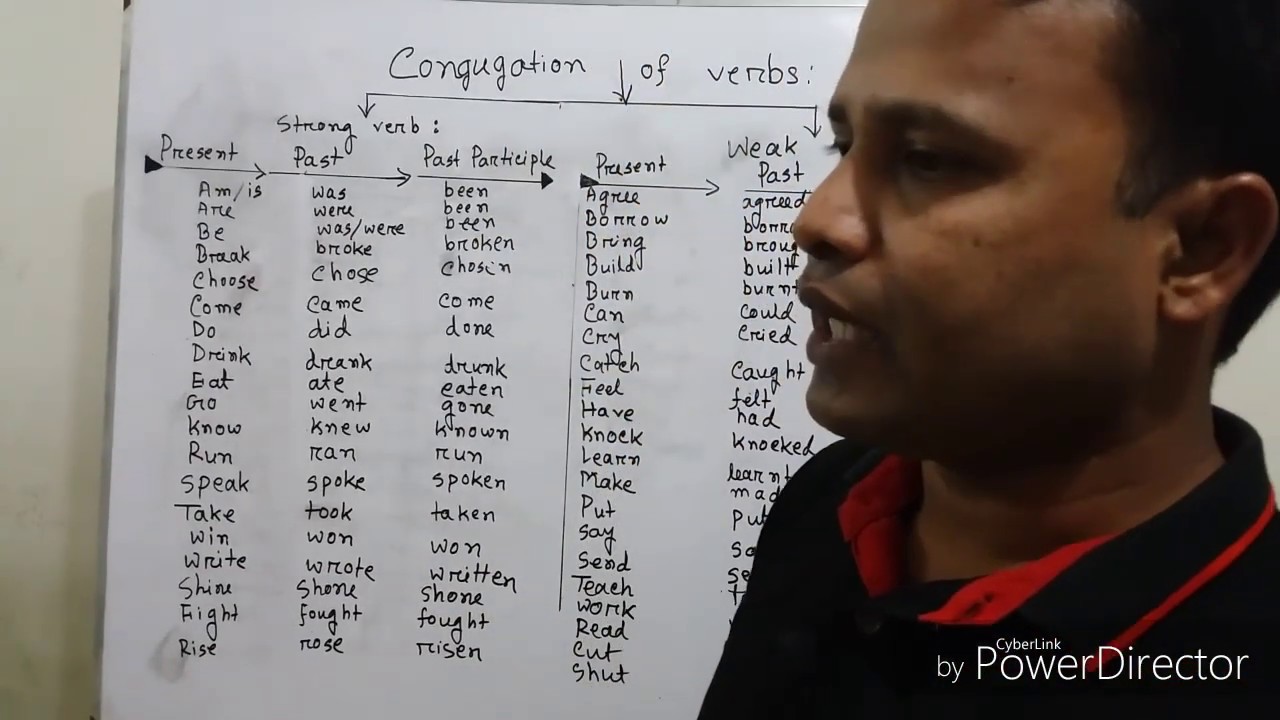 Congugation of verbs:
Strong verb:
Present Past Past Participle
Am/is was been
Are were been
Be was/were been
Braak broke broken
Choose chose chosin
Come came come
Do did done
Drink drank drunk
Eat ate eaten
Go went gone
Know knew known
Run ran run
Speak spoke spoken
Take took taken
Win won won
Write wrote written
Shine Shone Shone
Fight fought fought
Rise rose risen
Weak
Present Past
Agree agreed
Borrow borro
Bring broug
Build built
Burn burnt
Can could
Cry Cried
Catch Caught
Feel felt
Have had
Knock Knocked
Learn learnt
Make mad
Put Put
Say sa
Send se
Teach
Work
Read
Cut
Shut
CyberLink
by PowerDirector